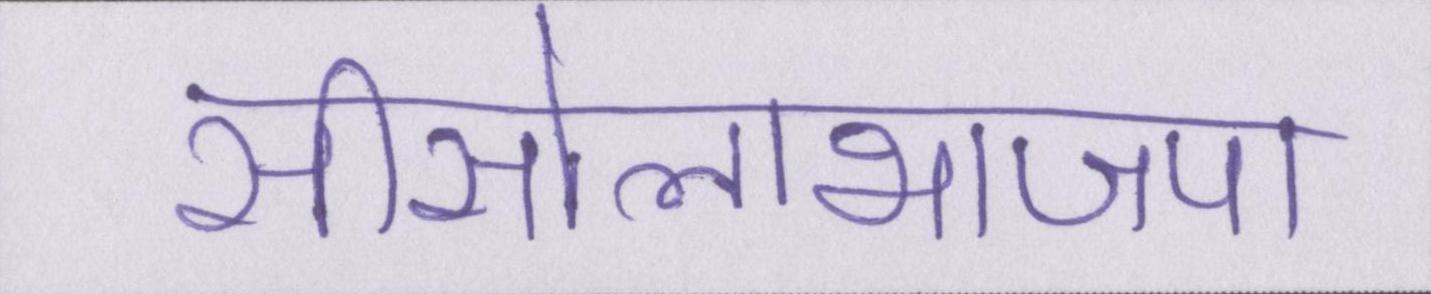 सीसोलाभाजपा